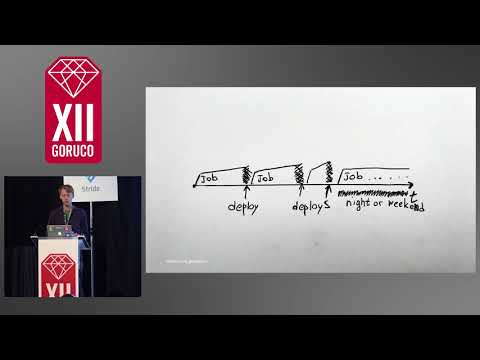 XII
GORUCO
Stride
XII
Job
Job
Job ... ...
t
deploy
deploys
night or weekend